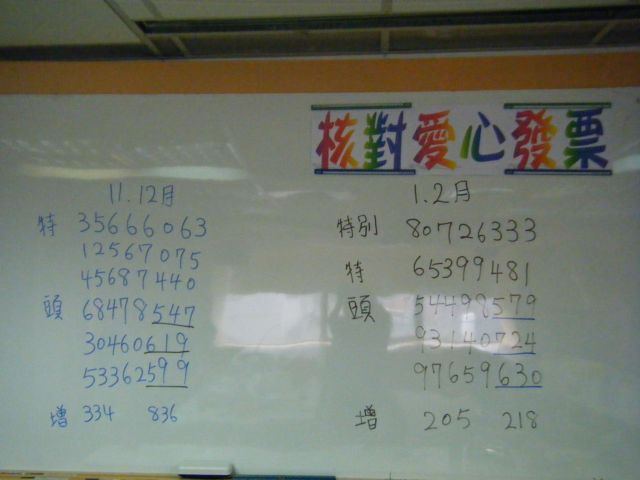 核對愛心發票
11.12月
特 35666063
12567075
45687440
頭 68478547
30460619
53362599
增 334 836
1.2月
特別 80726333
特 65399481
頭 54498579
93140724
97659630
增 205 218